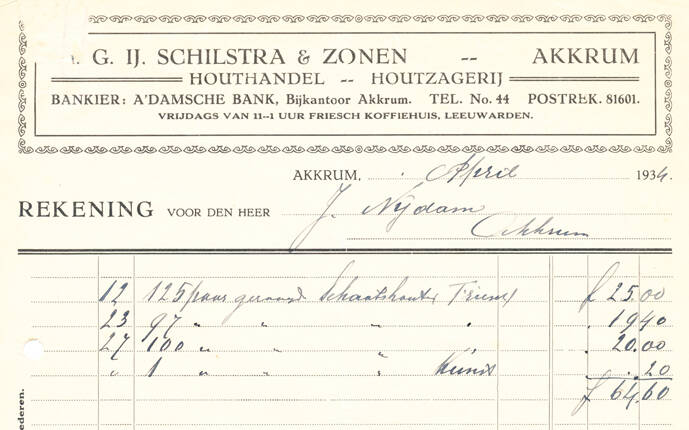 . G. IJ. SCHILSTRA & ZONEN -- AKKRUM
HOUTHANDEL -- HOUTZAGERIJ
BANKIER: A'DAMSCHE BANK, Bijkantoor Akkrum. TEL. No. 44 POSTREK. 81601.
VRIJDAGS VAN 11-1 UUR FRIESCH KOFFIEHUIS, LEEUWARDEN.
AKKRUM, April 1934.
REKENING VOOR DEN HEER J. Nijdam
Akkrum
12 125 paar gerooid Schaatshouten f 25.00
23 97 " " " " . 19 40
27 100 " " " . 20.00
" 1 " " " . . 20
f 64.60
ederen.